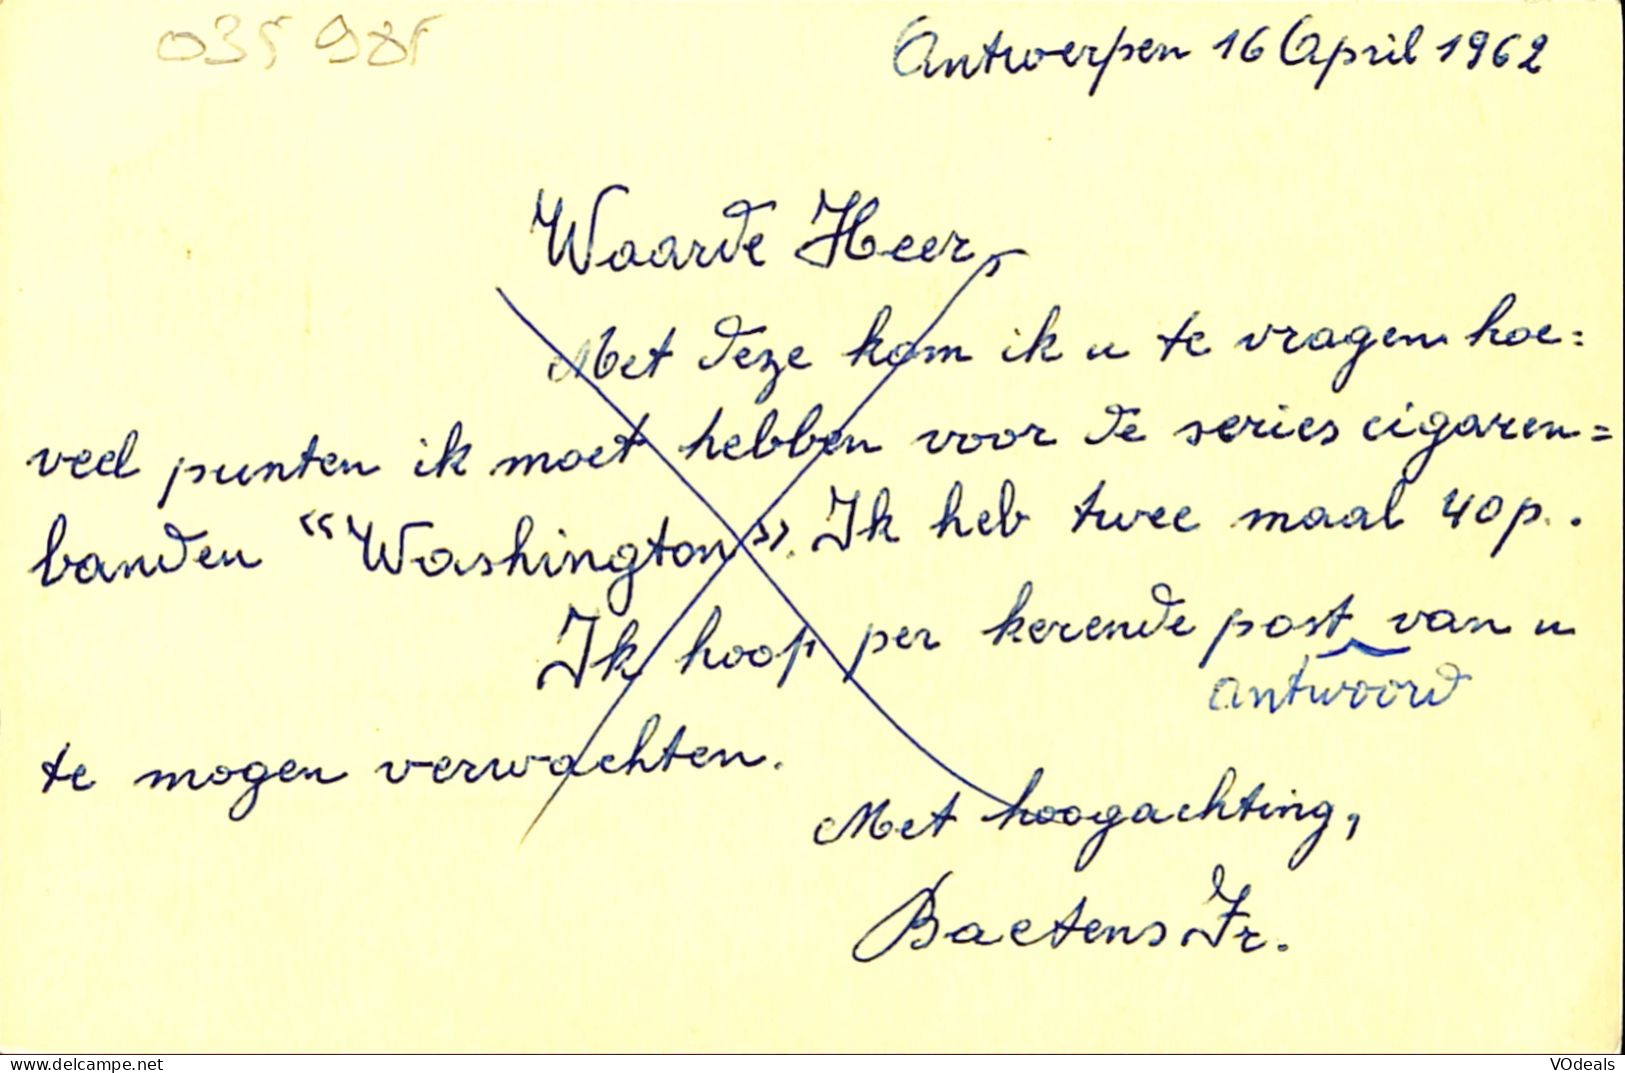 035 985
Antwerpen 16 April 1962
Waarde Heer,
Met deze kom ik u te vragen hoe=
veel punten ik moet hebben voor de series cigaren=
banden "Washington". Ik heb twee maal 40 p.
Ik hoop per kerende post van u
antwoord
te mogen verwachten.
Met hoogachting,
Baetens Fr.
www.delcampe.net
VOdeals